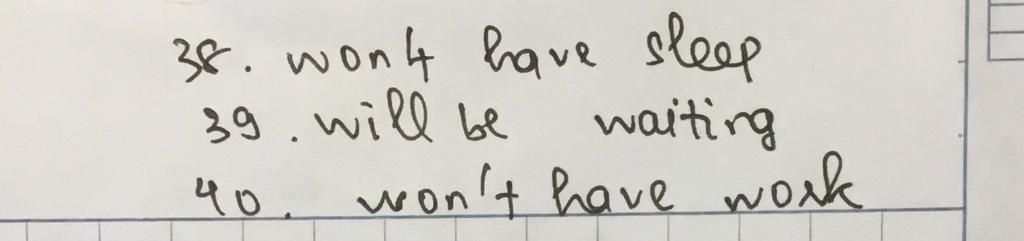 38. won't have sleep
39. will be waiting
40. won't have work